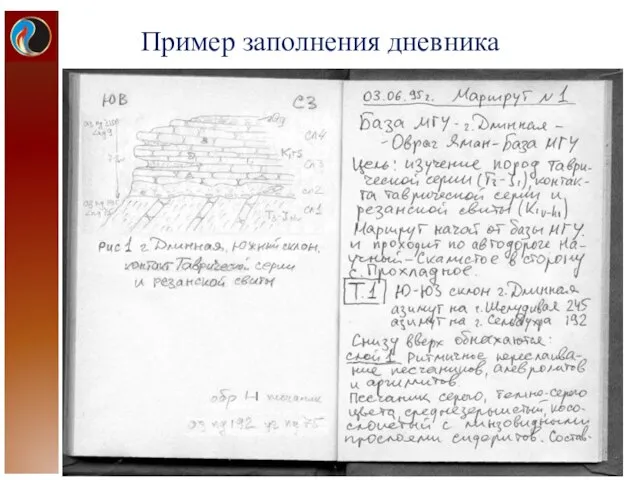 Пример заполнения дневника
ЮВ СЗ
сл4
K₁rs
сл3
сл2
сл1
Рис 1 г. Длинная, Южный склон,
контакт Таврической серии
и резанской свиты
обр Н песчаник
аз пд 192 уг пд 75
03.06.95г. Маршрут №1
База МГУ - г. Длинная -
- Овраг Яман - База МГУ
Цель: изучение пород Таври-
ческой серии (T₂-J₁), контак-
та таврической серии и
резанской свиты
Маршрут начат от базы МГУ
и проходит по автодороге На-
учный - Скалистое в сторону
с. Прохладное.
Т.1 Ю-ЮЗ склон г. Длинная
азимут на г. Шелудивая 245
азимут на г. 192
Снизу вверх обнажаются:
слой 1 Ритмичное переслаива-
ние песчаников, алевролитов
и аргиллитов.
Песчаник серого, темно-серого
цвета, среднезернистый, косо-
слоистый с линзовидными
прослоями сидеритов. Состав-